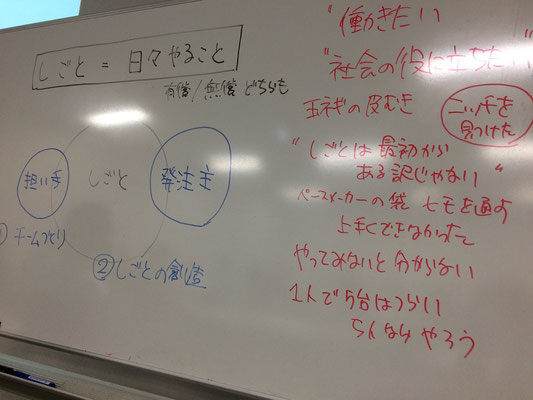 しごと = 日々やること
有償/無償 どちらも
担い手
しごと
発注主
① チームづくり
② しごとの創造
"働きたい"
"社会の役に立ちたい"
玉ネギの皮むき
ニッチを
見つけた
"しごとは最初から
ある訳じゃない"
ペースメーカーの袋 ヒモを通す
上手くできなかった
やってみないと分からない
1人で5台はつらい
5人ならやろう